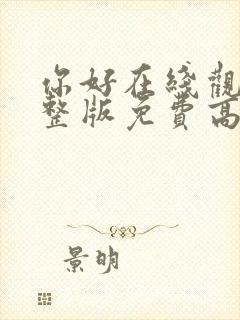 你好在綫觀
整版免費高
景明